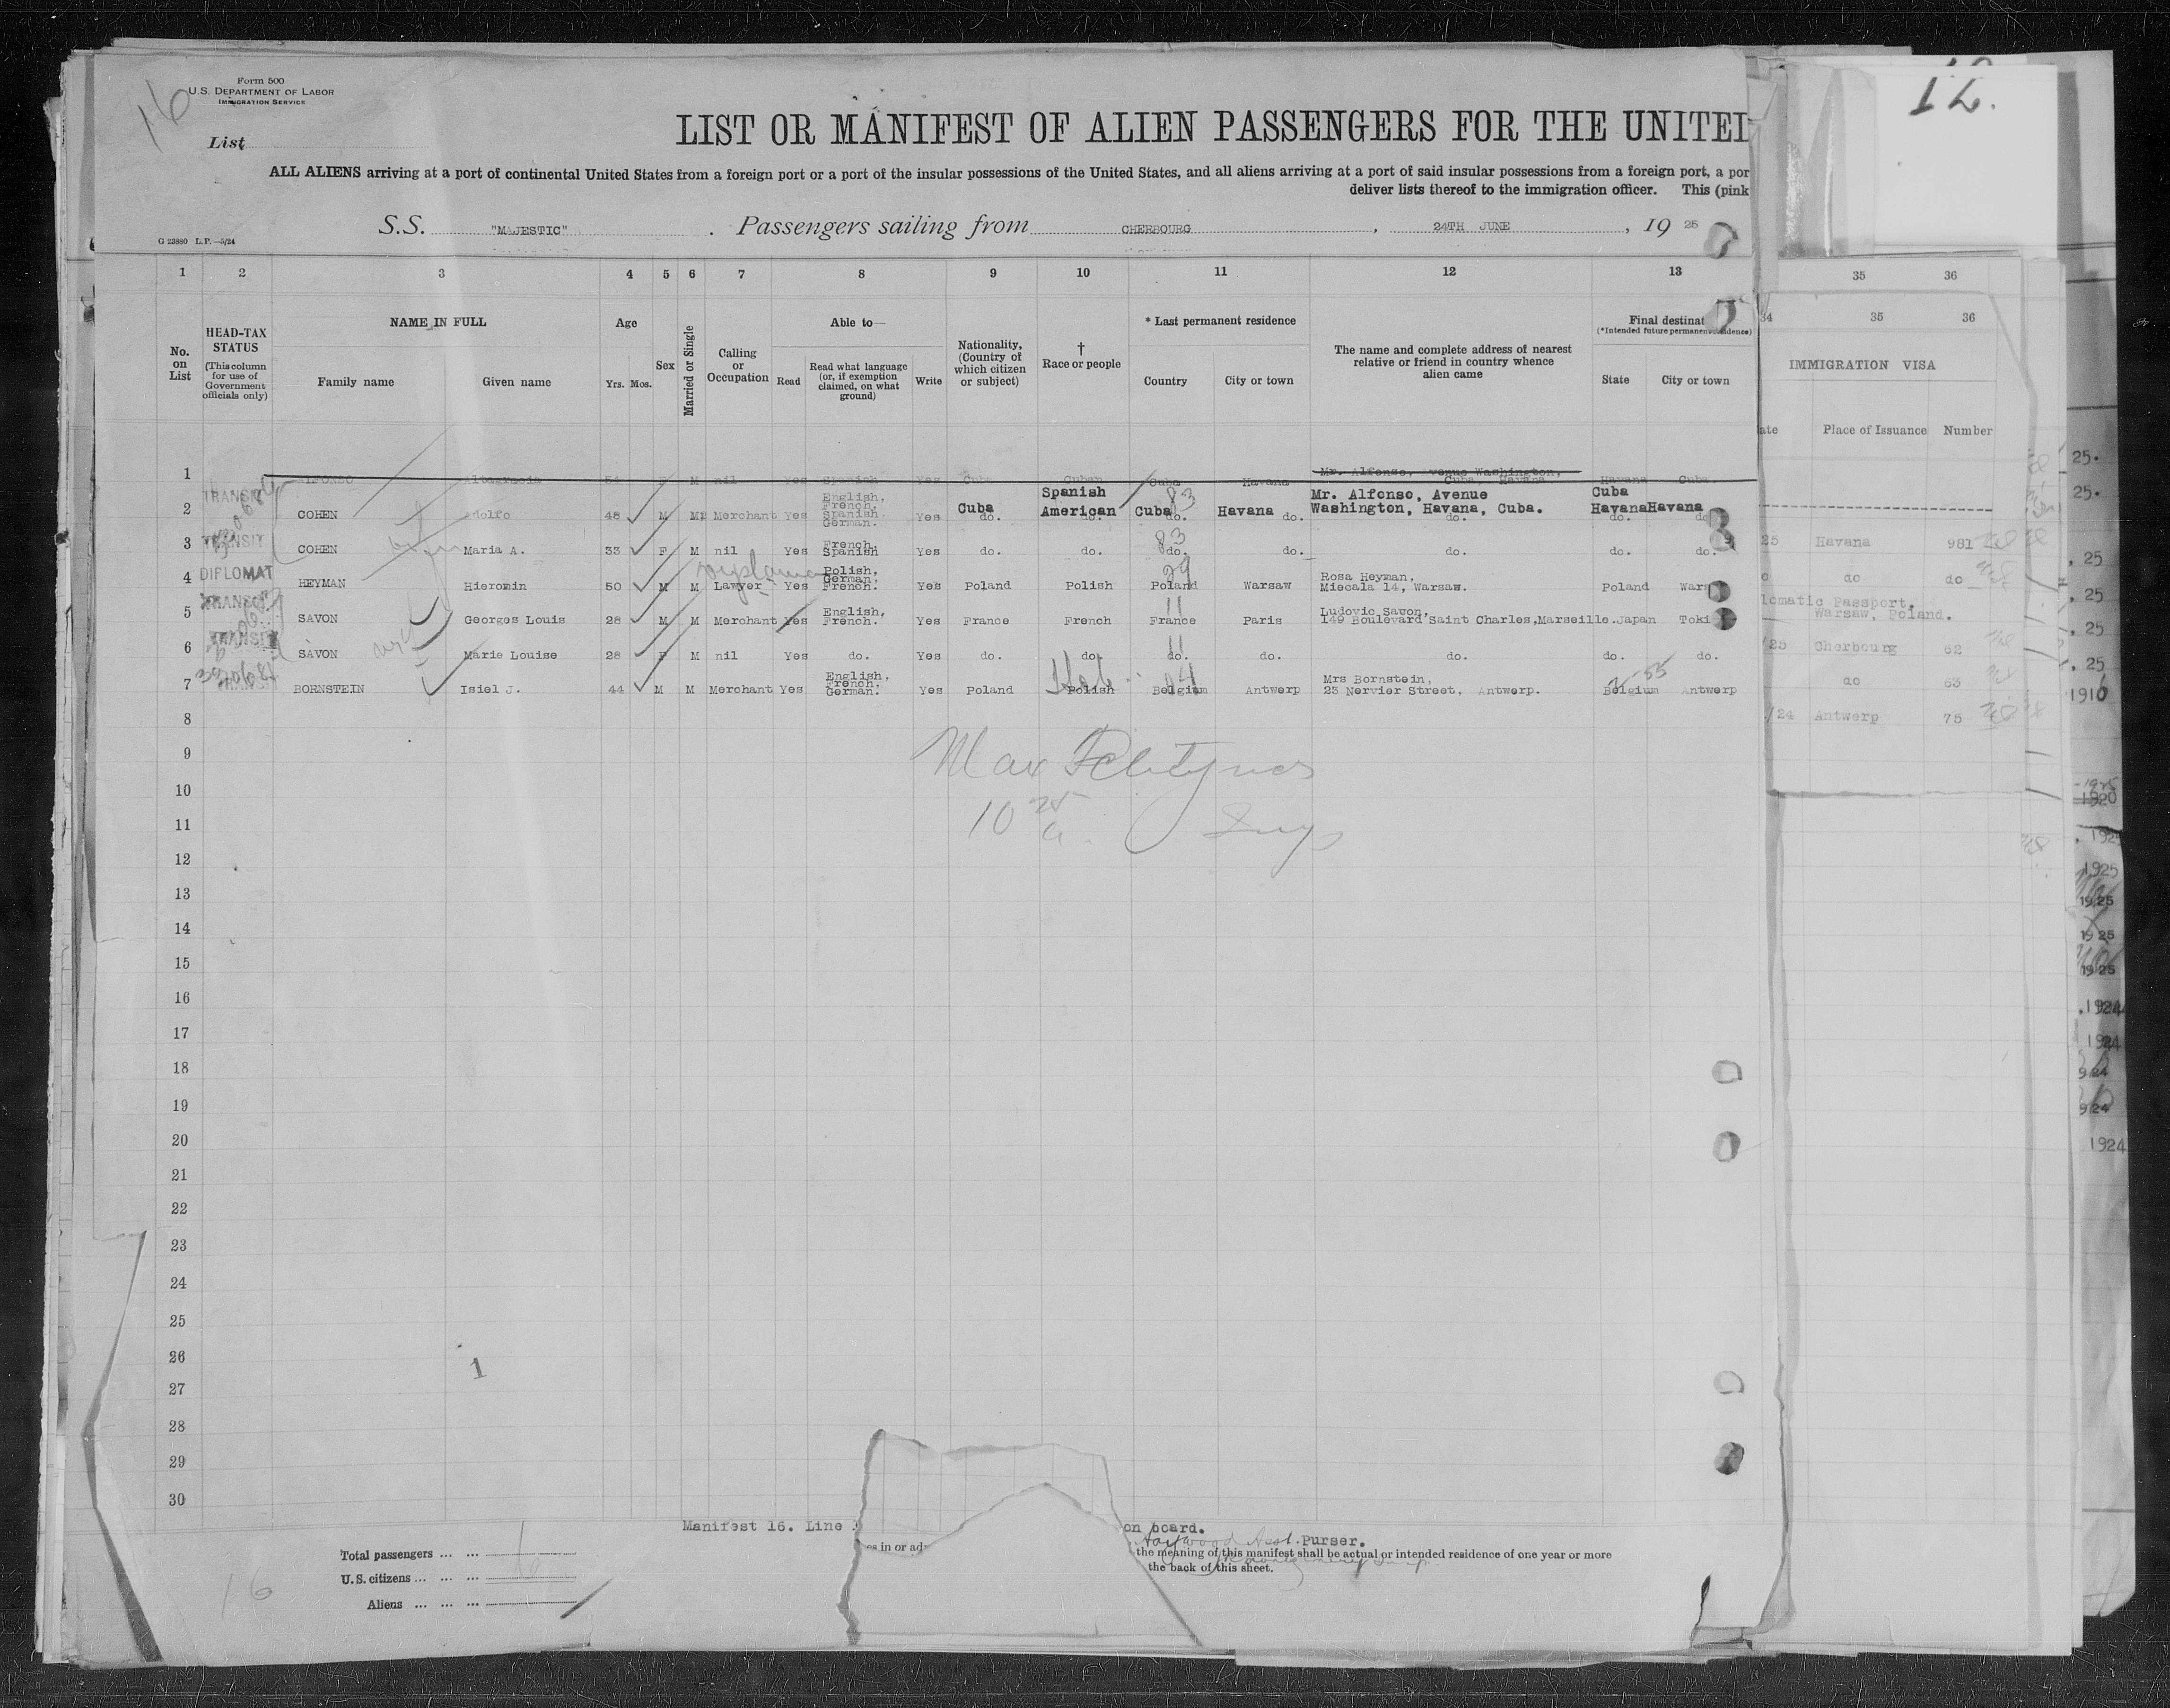 16
Form 500
U.S. DEPARTMENT OF LABOR
IMMIGRATION SERVICE
List
12.
LIST OR MANIFEST OF ALIEN PASSENGERS FOR THE UNITED
ALL ALIENS arriving at a port of continental United States from a foreign port or a port of the insular possessions of the United States, and all aliens arriving at a port of said insular possessions from a foreign port, a por
deliver lists thereof to the immigration officer. This (pink
S.S. "MAJESTIC" . Passengers sailing from CHERBOURG , 24TH JUNE , 19 25
G 23880 L.P.—5/24
1 2 3 4 5 6 7 8 9 10 11 12 13 35 36
34 35 36
No. on List
HEAD-TAX STATUS
(This column for use of Government officials only)
NAME IN FULL
Family name Given name
Age
Yrs. Mos.
Sex
Married or Single
Calling or Occupation
Able to—
Read Read what language (or, if exemption claimed, on what ground) Write
Nationality, (Country of which citizen or subject)
† Race or people
* Last permanent residence
Country City or town
The name and complete address of nearest relative or friend in country whence alien came
Final destinat
(*Intended future permanent residence)
State City or town
IMMIGRATION VISA
ate Place of Issuance Number
1 ALFONSO Altagracia 54 F M nil Yes Spanish Yes Cuba Cuban Cuba Havana Mr. Alfonso, Avenue Washington, Cuba, Havana Havana Cuba
2 TRANSIT COHEN Adolfo 48 M M Merchant Yes English, French, Spanish, German. Yes Cuba do. Spanish American do. Cuba do. 83 Havana do. Mr. Alfonso, Avenue Washington, Havana, Cuba. do. Cuba Havana do. Havana do. 25 Havana 981
3 TRANSIT COHEN Maria A. 33 F M nil Yes French, Spanish Yes do. do. 83 do. do. do. do. do. do do
4 DIPLOMAT HEYMAN Hieromin 50 M M Lawyer Yes Polish, German, French. Yes Poland Polish 29 Poland Warsaw Rosa Heyman, Miecala 14, Warsaw. Poland Wars lomatic Passport, Warsaw, Poland.
5 TRANSIT SAVON Georges Louis 28 M M Merchant Yes English, French. Yes France French 11 France Paris Ludovic Savon, 149 Boulevard Saint Charles, Marseille. Japan Toki /25 Cherbourg 62
6 TRANSIT SAVON Marie Louise 28 F M nil Yes do. Yes do. do. 11 do. do. do. do. do. do 63
7 TRANSIT BORNSTEIN Isiel J. 44 M M Merchant Yes English, French, German. Yes Poland Heb. Polish Belgium Antwerp Mrs Bornstein, 23 Nervier Street, Antwerp. Belgium Antwerp /24 Antwerp 75
8
9
Max
10
10 25 a.
11
12
13
14
15
16
17
18
19
20
21
22
23
24
25
26
1
27
28
29
30
Manifest 16. Line
on board.
Asst. Purser.
es in or ad
the meaning of this manifest shall be actual or intended residence of one year or more
the back of this sheet.
Total passengers ... ...
U.S. citizens ... ... ...
Aliens ... ... ...
16
25.
25.
, 25
, 25
, 25
, 25
1916
1920
1925
1925
1925
1925
1925
1924
1924
924
924
1924